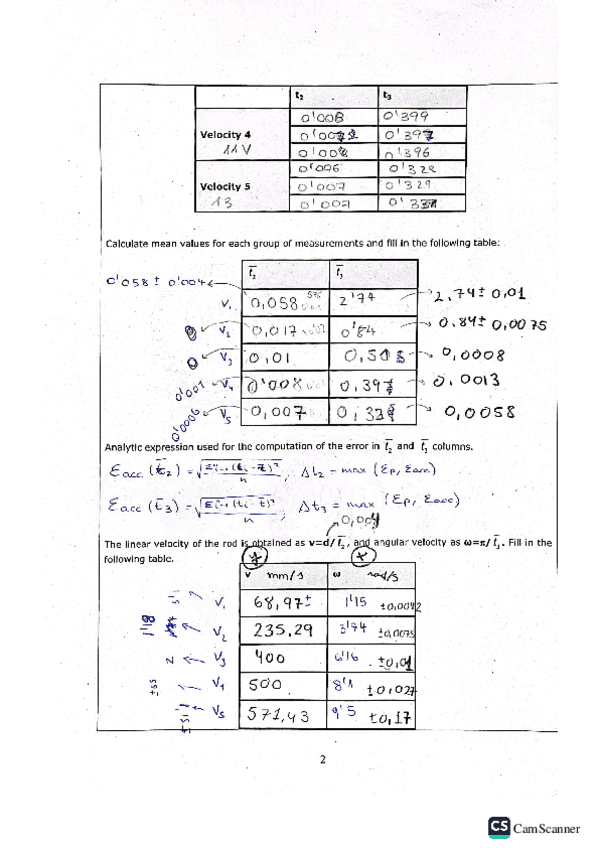 t₂ t₃
Velocity 4 0'008 0'399
11 V 0'397
0'008 0'396
Velocity 5 0'006 0'328
13 0'007 0'329
0'007 0'331
Calculate mean values for each group of measurements and fill in the following table:
0'058 ± 0'004 t̅₂ t̅₃
V₁ 0,058 2'74 2,74 ± 0,01
0 V₂ 0,017 0'84 0.84 ± 0,0075
0 V₃ 0,01 0,0008
0'001 V₄ 0'008 0,397 0.0013
0'0006 V₅ 0,007 0,0058
Analytic expression used for the computation of the error in t̅₂ and t̅₃ columns.
Eacc (t̅₂) = √(Σ(ti - t̅)²/n), Δt₂ = max (Ep, Eacc)
Eacc (t̅₃) = √(Σ(ti - t̅)²/n), Δt₃ = max (Ep, Eacc)
0,004
The linear velocity of the rod is obtained as v=d/t̅₂, and angular velocity as ω=π/t̅₃. Fill in the
following table.
v mm/s ω rad/s
V₁ 68,97± 1'15 ±0,0042
V₂ 235,29 3'74 ±0,0075
2 V₃ 400 6'16 ±0,01
V₄ 500 8'1 ±0,027
V₅ 571,43 9'5 ±0,17
2
CS CamScanner